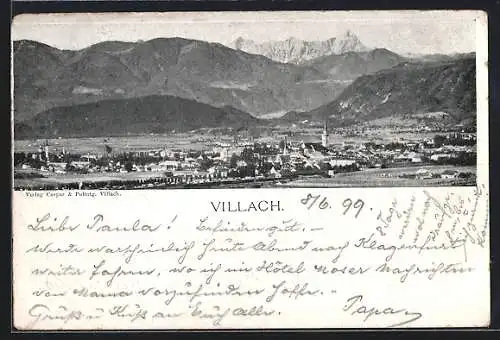 Verlag Caspar & Pulnig, Villach.
VILLACH.
8/6. 99
Liebe Paula! Befinden gut.-
Werde warscheinlich heute Abend nach Klagenfurt
weiter fahren, wo ich im Hôtel Moser Nachrichten
von Mama vorzufinden hoffe.-
Gruß u Kuß an Euch alle.
Papa